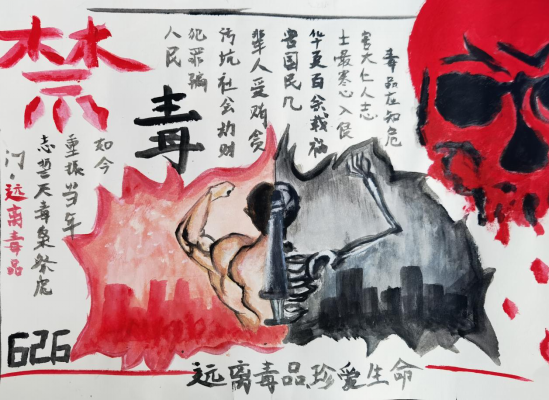 禁
毒
毒品在知危
害大仁人志
士最寒心入侵
华夏百余载祸
害国民几
辈人受贿贪
污坑社会劫财
犯罪骗
人民
如今
重振当年
志誓灭毒枭祭虎
门·远离毒品
626
远离毒品珍爱生命